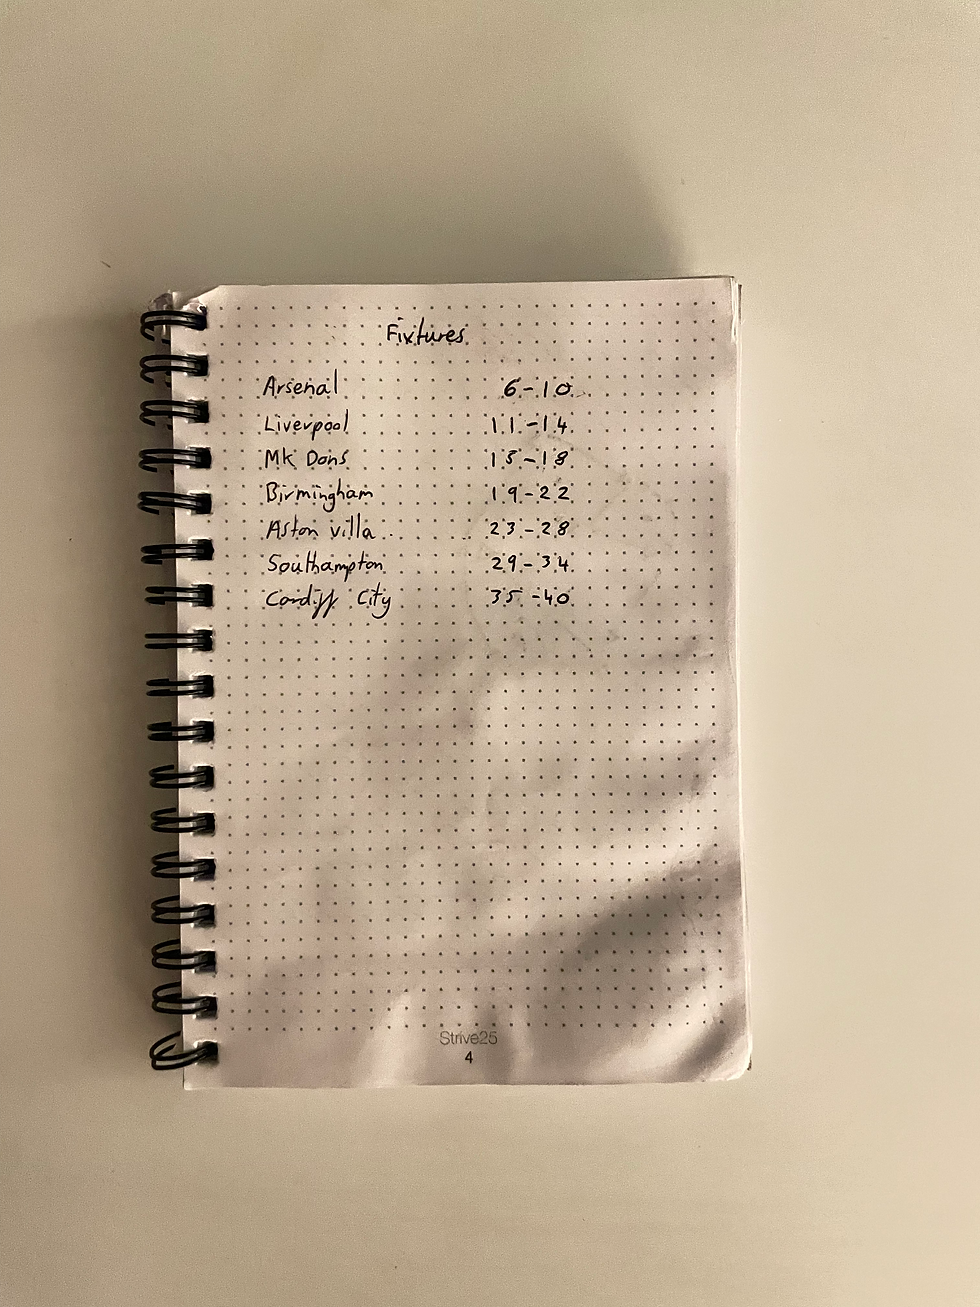 Fixtures
Arsenal 6-10
Liverpool 11-14
Mk Dons 15-18
Birmingham 19-22
Aston villa 23-28
Southampton 29-34
Cardiff City 35-40
Strive25
4